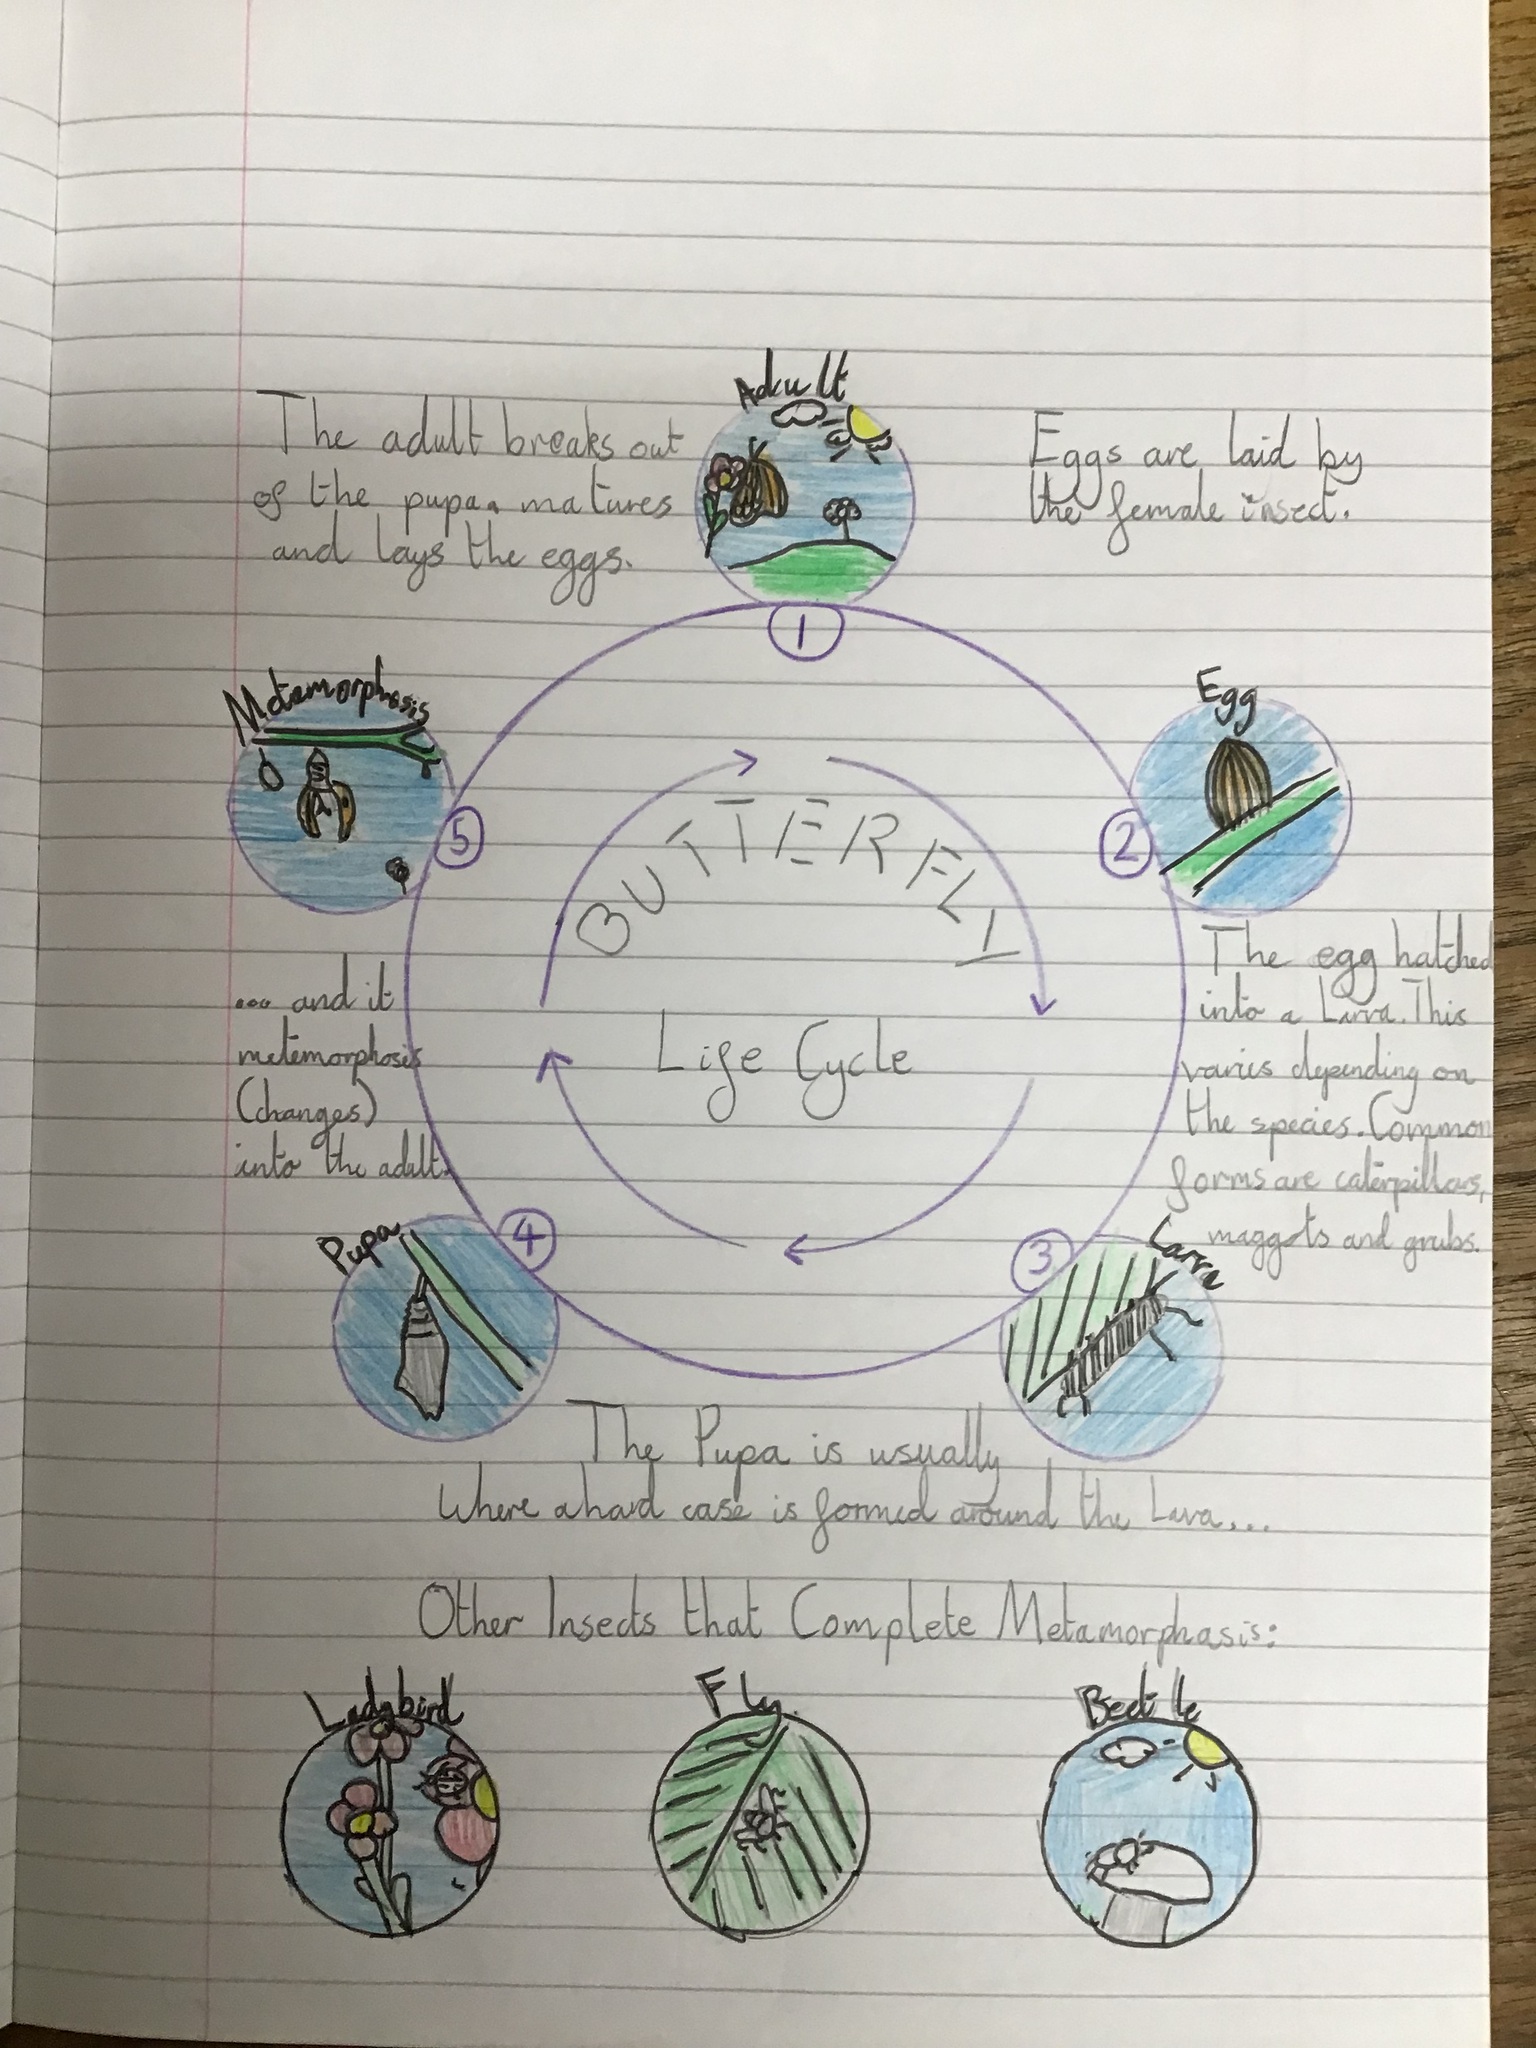 Adult
The adult breaks out
of the pupa. matures
and lays the eggs.
Eggs are laid by
the female insect.
1
Metamorphosis
5
Egg
2
BUTTERFLY
Life Cycle
... and it
metemorphosis
(changes)
into the adult.
The egg hatched
into a Larva. This
varies depending on
the species. Common
forms are caterpillars,
maggots and grubs.
Pupa
4
3
Larva
The Pupa is usually
where a hard case is formed around the Lava...
Other Insects that Complete Metamorphasis:
Ladybird
Fly
Beetle